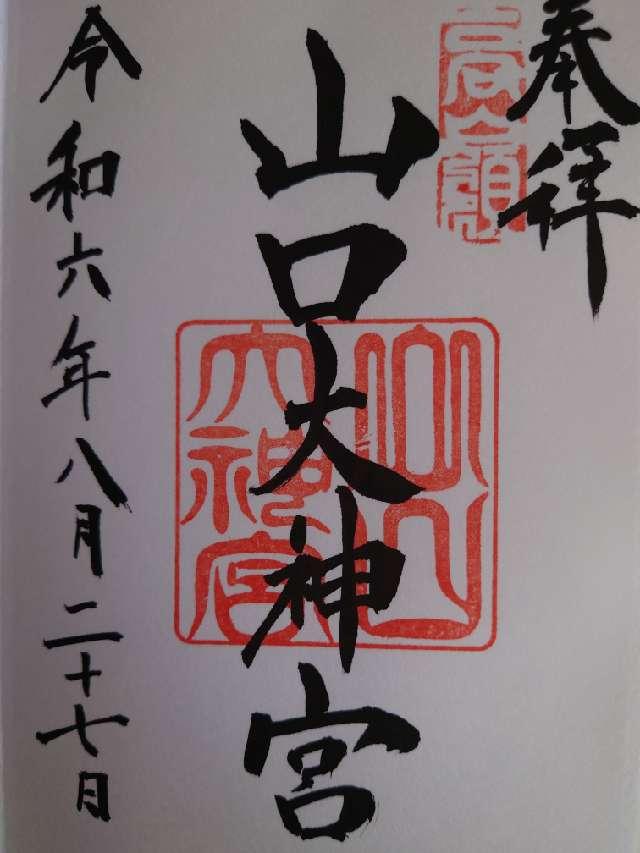 奉拝
高嶺
山口大神宮
山口大神宮
令和六年八月二十七日